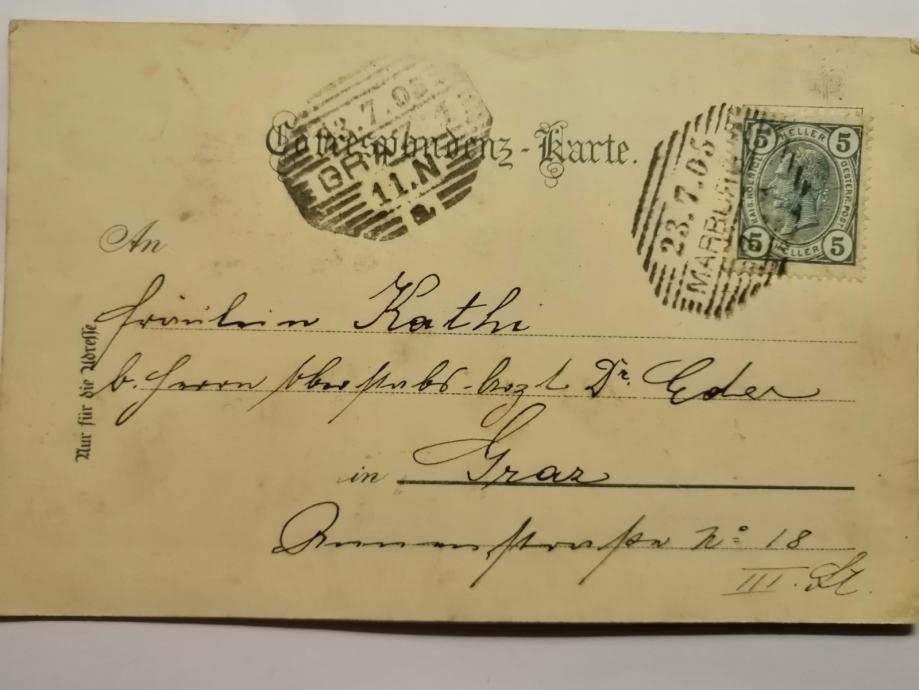 Correspondenz-Karte.
23.7.05
GRAZ 1
11.N
a.
23.7.05
MARBURG
5 HELLER 5
KAIS. KOENIGL.
OESTERR. POST
5 HELLER 5
An
Fräulein Kathi
b. Herrn Oberstabs-Arzt Dr. Eder
in Graz
Nur für die Adresse
No 18
III. St.